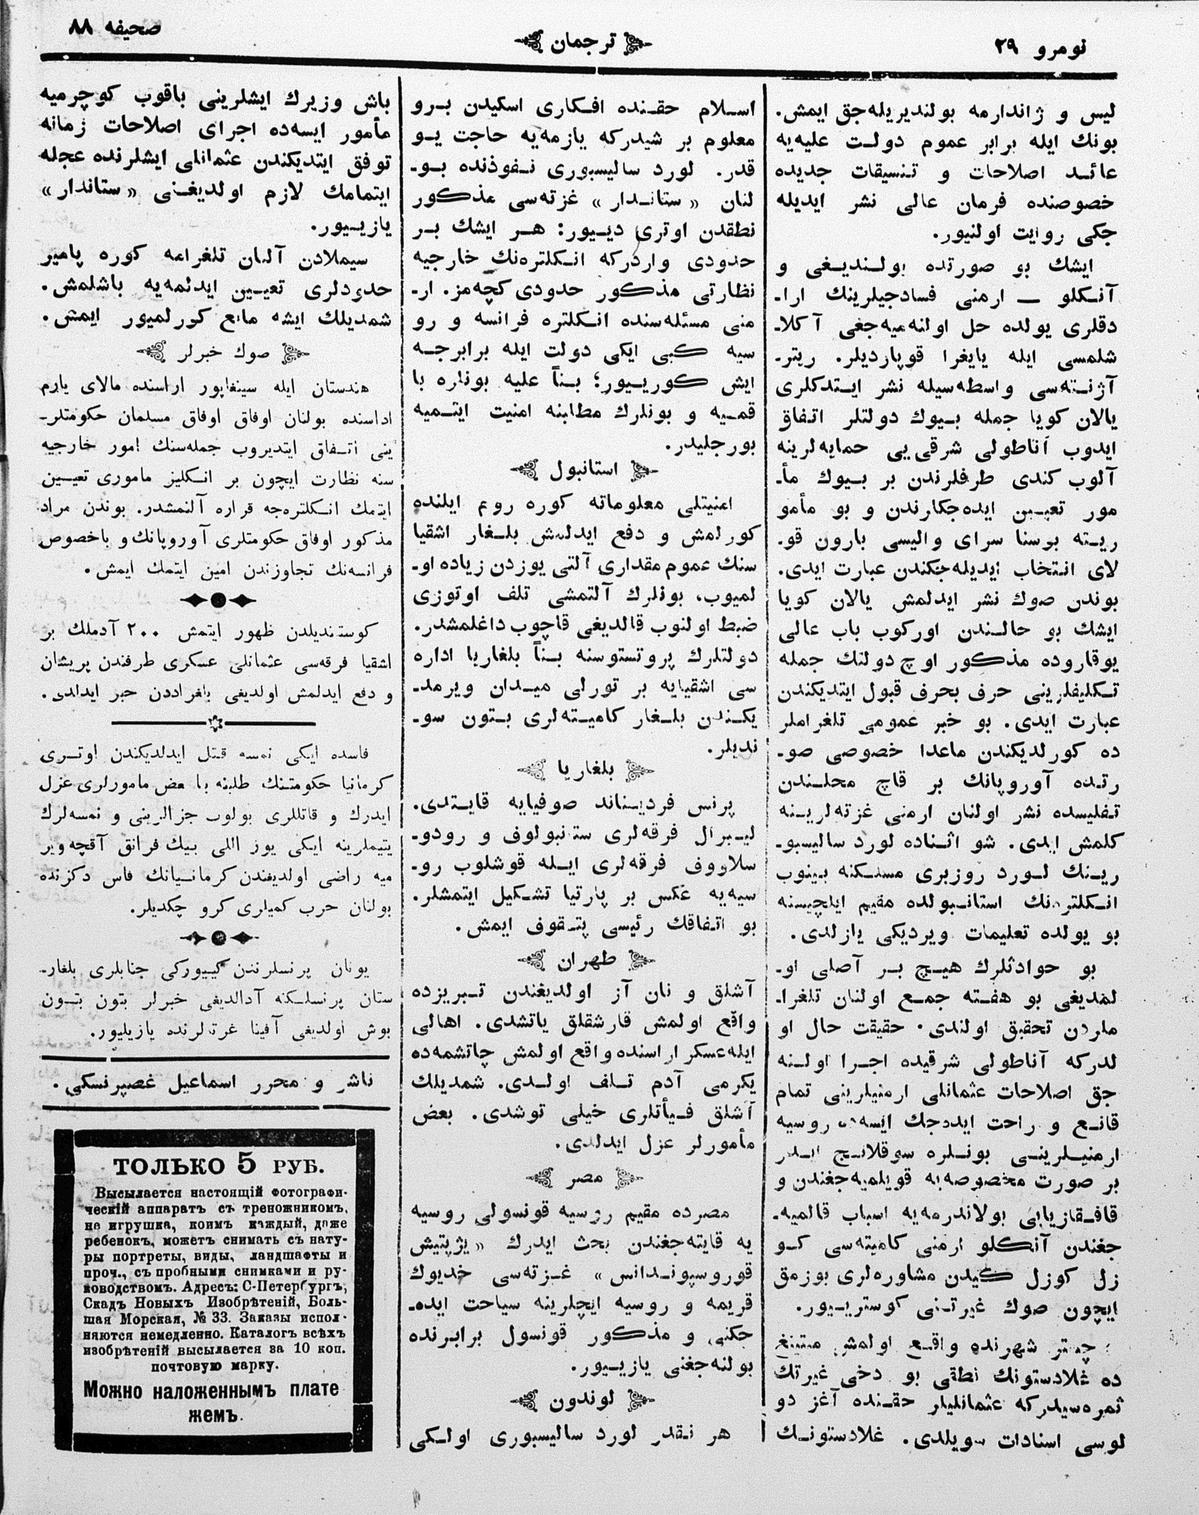 نومرو ٢٩
ترجمان
صحیفه ٨٨
لیس و ژاندارمه بولندیریله‌جق ایمش.
بونك ایله برابر عموم دولت علیه‌یه
عائد اصلاحات و تنسیقات جدیده
خصوصنده فرمان عالی نشر ایدیله
جکی روایت اولنیور.
ایشك بو صورتده بولندیغی و
آنکلو — ارمنی فسادجیلرینك ارا-
دقلری یولده حل اولنه‌میه‌جغی آکلا-
شلمسی ایله یایغرا قوپاردیلر. ریتر-
آژنته‌سی واسطه‌سیله نشر ایتدکلری
یالان کویا جمله بیوك دولتلر اتفاق
ایدوب آناطولی شرقی‌یی حمایه‌لرینه
آلوب کندی طرفلرندن بر بیوك مأ-
مور تعیین ایده‌جکلرندن و بو مأمو
ریته بوسنا سرای والیسی بارون قو-
لای انتخاب ایدیله‌جکندن عبارت ایدی.
بوندن صوك نشر ایدلمش یالان کویا
ایشك بو حالندن اورکوب باب عالی
یوقاروده مذکور اوچ دولتك جمله
تکلیفلرینی حرف بحرف قبول ایتدیکندن
عبارت ایدی. بو خبر عمومی تلغراملر
ده کورلدیکندن ماعدا خصوصی صو-
رتده آوروپانك بر قاچ محلندن
تفلیسده نشر اولنان ارمنی غزته‌لرینه
کلمش ایدی. شو اثناده لورد سالیسبو-
رینك لورد روزبری مسلکنه بینوب
انکلتره‌نك استانبولده مقیم ایلچیسنه
بو یولده تعلیمات ویردیکی یازلدی.
بو حوادثلرك هیچ بر آصلی او-
لمدیغی بو هفته جمع اولنان تلغرا-
ملردن تحقیق اولندی. حقیقت حال او
لدرکه آناطولی شرقیده اجرا اولنه
جق اصلاحات عثمانلی ارمنیلرینی تمام
قانع و راحت ایده‌جك ایسه‌ده روسیه
ارمنیلرینی بونلره سوقلانچ ایدر
بر صورت مخصوصه‌یه قویلمیه‌جغندن و
قافقازیایی بولاندرمه‌یه اسباب قالمیه-
جغندن آنکلو ارمنی کامیته‌سی کو
زل کوزل کیدن مشاوره‌لری بوزمق
ایچون صوك غیرتنی کوستریور.
چستر شهرنده واقع اولمش میتینغ
ده غلادستونك نطقی بو دخی غیرتك
ثمره‌سیدرکه عثمانلیلر حقنده آغز دو
لوسی اسنادات سویلدی. غلادستونك
اسلام حقنده افکاری اسکیدن برو
معلوم بر شیدرکه یازمه‌یه حاجت یو
قدر. لورد سالیسبوری نفوذنده بو-
لنان «ستاندار» غزته‌سی مذکور
نطقدن اوتری دییور: هر ایشك بر
حدودی واردرکه انکلتره‌نك خارجیه
نظارتی مذکور حدودی کچه‌مز. ار-
منی مسئله‌سنده انکلتره فرانسه و رو
سیه کبی ایکی دولت ایله برابرجه
ایش کورییور؛ بناً علیه بونلره با
قمیه و بونلرك مطالبنه امنیت ایتمیه
بورجلیدر.
استانبول
امنیتلی معلوماته کوره روم ایلنده
کورلمش و دفع ایدلمش بلغار اشقیا
سنك عموم مقداری آلتی یوزدن زیاده او-
لمیوب، بونلرك آلتمشی تلف اوتوزی
ضبط اولنوب قالدیغی قاچوب داغلمشدر.
دولتلرك پروتستوسنه بناً بلغاریا اداره
سی اشقیایه بر تورلی میدان ویرمد-
یکندن بلغار کامیته‌لری بتون سو-
ندیلر.
بلغاریا
پرنس فردیناند صوفیایه قایتدی.
لیبرال فرقه‌لری ستنبولوف و رودو-
سلاروف فرقه‌لری ایله قوشلوب رو-
سیه‌یه عکس بر پارتیا تشکیل ایتمشلر.
بو اتفاقك رئیسی پتقوف ایمش.
طهران
آشلق و نان آز اولدیغندن تبریزده
واقع اولمش قارشقلق یاتشدی. اهالی
ایله‌عسکر اراسنده واقع اولمش چاتشمه‌ده
یکرمی آدم تلف اولدی. شمدیلك
آشلق فیأتلری خیلی توشدی. بعض
مأمورلر عزل ایدلدی.
مصر
مصرده مقیم روسیه قونسولی روسیه
یه قایته‌جغندن بحث ایدرك «یژپتیش
قوروسپوندانس» غزته‌سی خدیوك
قریمه و روسیه ایچلرینه سیاحت ایده-
جکنی و مذکور قونسول برابرنده
بولنه‌جغنی یازییور.
لوندون
هر نقدر لورد سالیسبوری اولکی
باش وزیرك ایشلرینی باقوب کوچرمیه
مأمور ایسه‌ده اجرای اصلاحات زمانه
توفق ایتدیکندن عثمانلی ایشلرنده عجله
ایتمامك لازم اولدیغنی «ستاندار»
یازییور.
سیملادن آلنان تلغرامه کوره پامیر
حدودلری تعیین ایدلمه‌یه باشلمش.
شمدیلك ایشه مانع کورلمیور ایمش.
صوك خبرلر
هندستان ایله سینغاپور اراسنده مالای یارم
اداسنده بولنان اوفاق اوفاق مسلمان حکومتلر-
ینی اتفاق ایتدیروب جمله‌سنك امور خارجیه
سنه نظارت ایچون بر انکلیز ماموری تعیین
ایتمك انکلتره‌جه قراره آلنمشدر. بوندن مراد
مذکور اوفاق حکومتلری آوروپانك و باخصوص
فرانسه‌نك تجاوزندن امین ایتمك ایمش.
کوستندیلدن ظهور ایتمش ٢٠٠ آدملك بر
اشقیا فرقه‌سی عثمانلی عسکری طرفندن پریشان
و دفع ایدلمش اولدیغی بلغراددن خبر ایدلدی.
فاسده ایکی نمسه قتل ایدلدیکندن اوتری
کرمانیا حکومتنك طلبنه بناً بعض مامورلری عزل
ایدرك و قاتللری بولوب جزالرینی و نمسه‌لرك
یتیملرینه ایکی یوز اللی بیك فرانق آقچه‌ویر
میه راضی اولدیغندن کرمانیانك فاس دکزنده
بولنان حرب کمیلری کرو چکدیلر.
یونان پرنسلرندن کییورکی جنابلری بلغار-
ستان پرنسلکنه آدالدیغی خبرلر بتون بتون
بوش اولدیغی آفینا غزته‌لرنده یازیلیور.
ناشر و محرر اسماعیل غصپرنسکی.
ТОЛЬКО 5 РУБ.
Высылается настоящій фотографи-
ческій аппаратъ съ треножникомъ,
не игрушка, коимъ каждый, даже
ребенокъ, можетъ снимать съ нату-
ры портреты, виды, ландшафты и
проч., съ пробными снимками и ру-
ководствомъ. Адресъ: С-Петербургъ,
Складъ Новыхъ Изобрѣтеній, Боль-
шая Морская, № 33. Заказы испол-
няются немедленно. Каталогъ всѣхъ
изобрѣтеній высылается за 10 коп.
почтовую марку.
Можно наложеннымъ плате
жемъ.